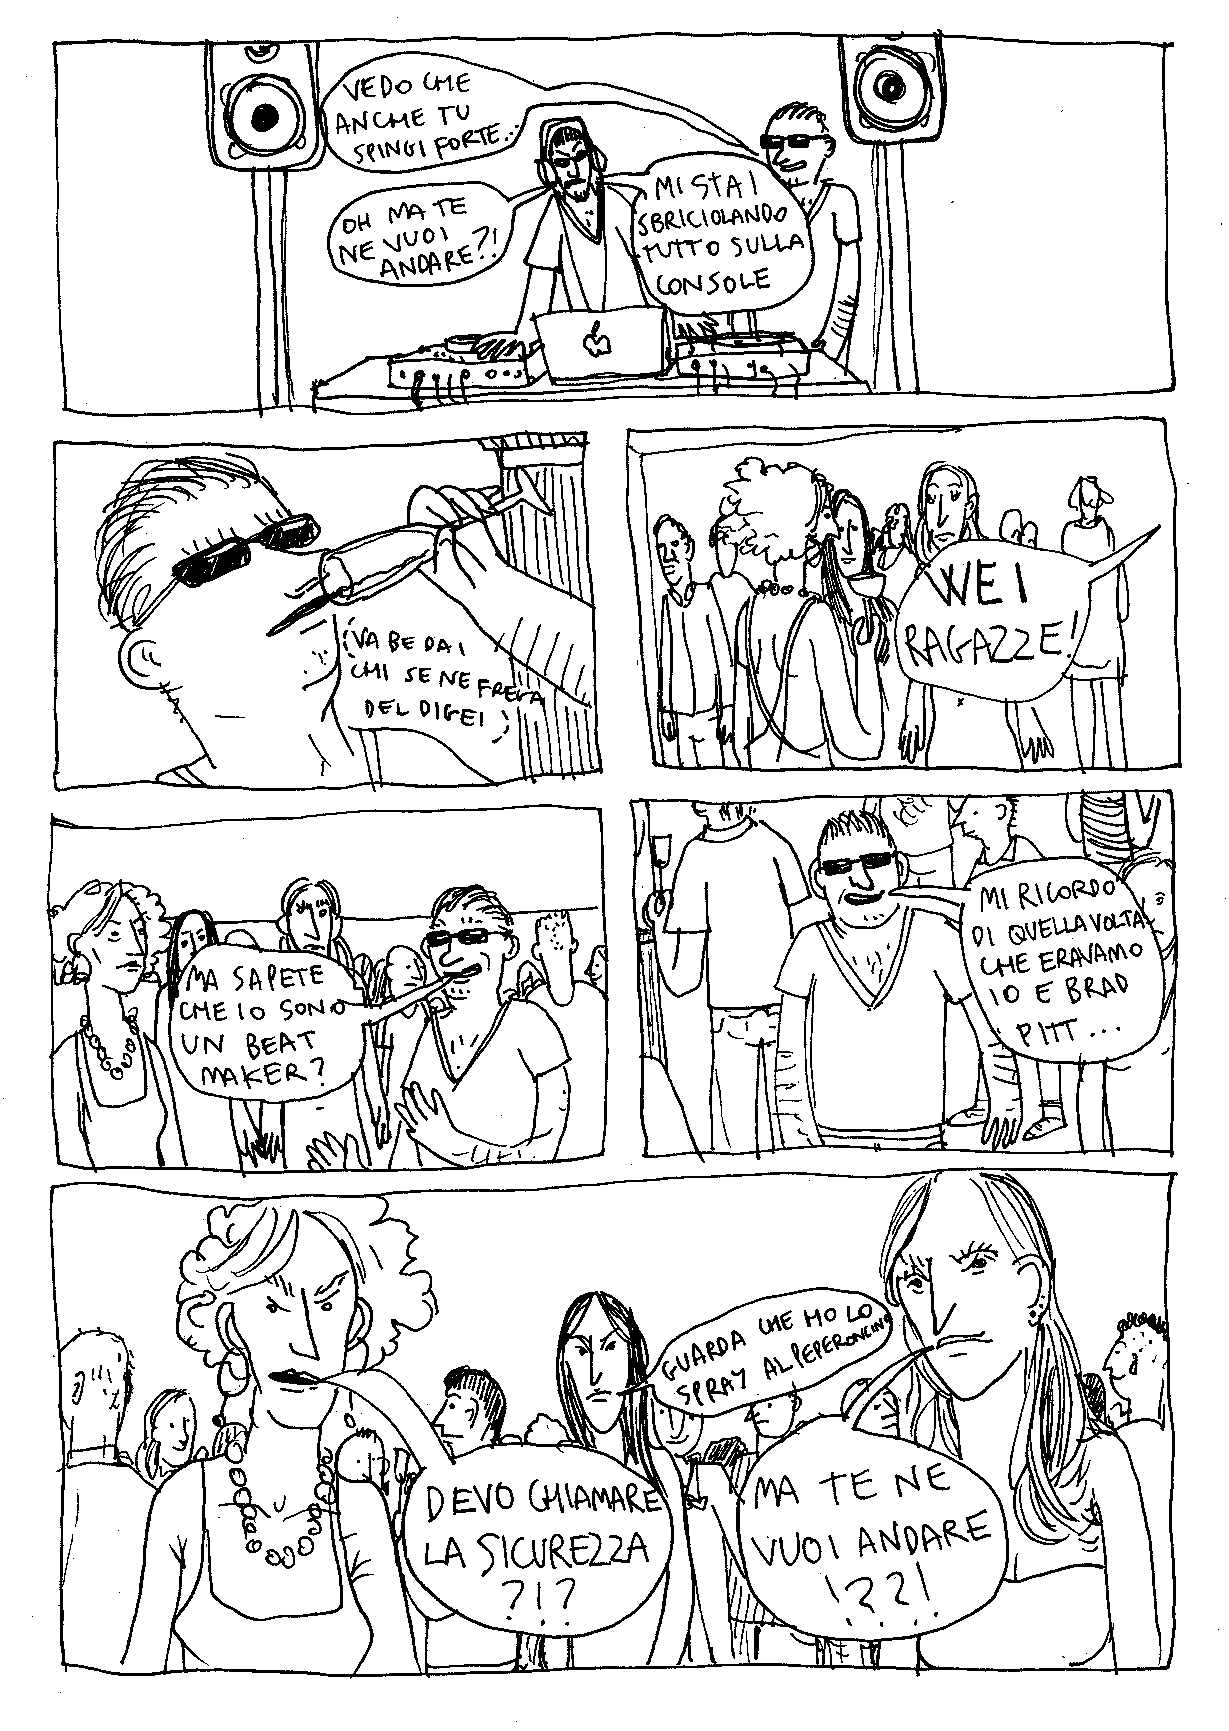 VEDO CHE
ANCHE TU
SPINGI FORTE...
OH MA TE
NE VUOI
ANDARE?!
MI STAI
SBRICIOLANDO
TUTTO SULLA
CONSOLE
VA BE DAI
CHI SE NE FREGA
DEL DIGEI
WEI
RAGAZZE!
MA SAPETE
CHE IO SONO
UN BEAT
MAKER?
MI RICORDO
DI QUELLA VOLTA
CHE ERAVAMO
IO E BRAD
PITT...
GUARDA CHE MO LO
SPRAY AL PEPERONCINO
DEVO CHIAMARE
LA SICUREZZA
?!?
MA TE NE
VUOI ANDARE
!??!